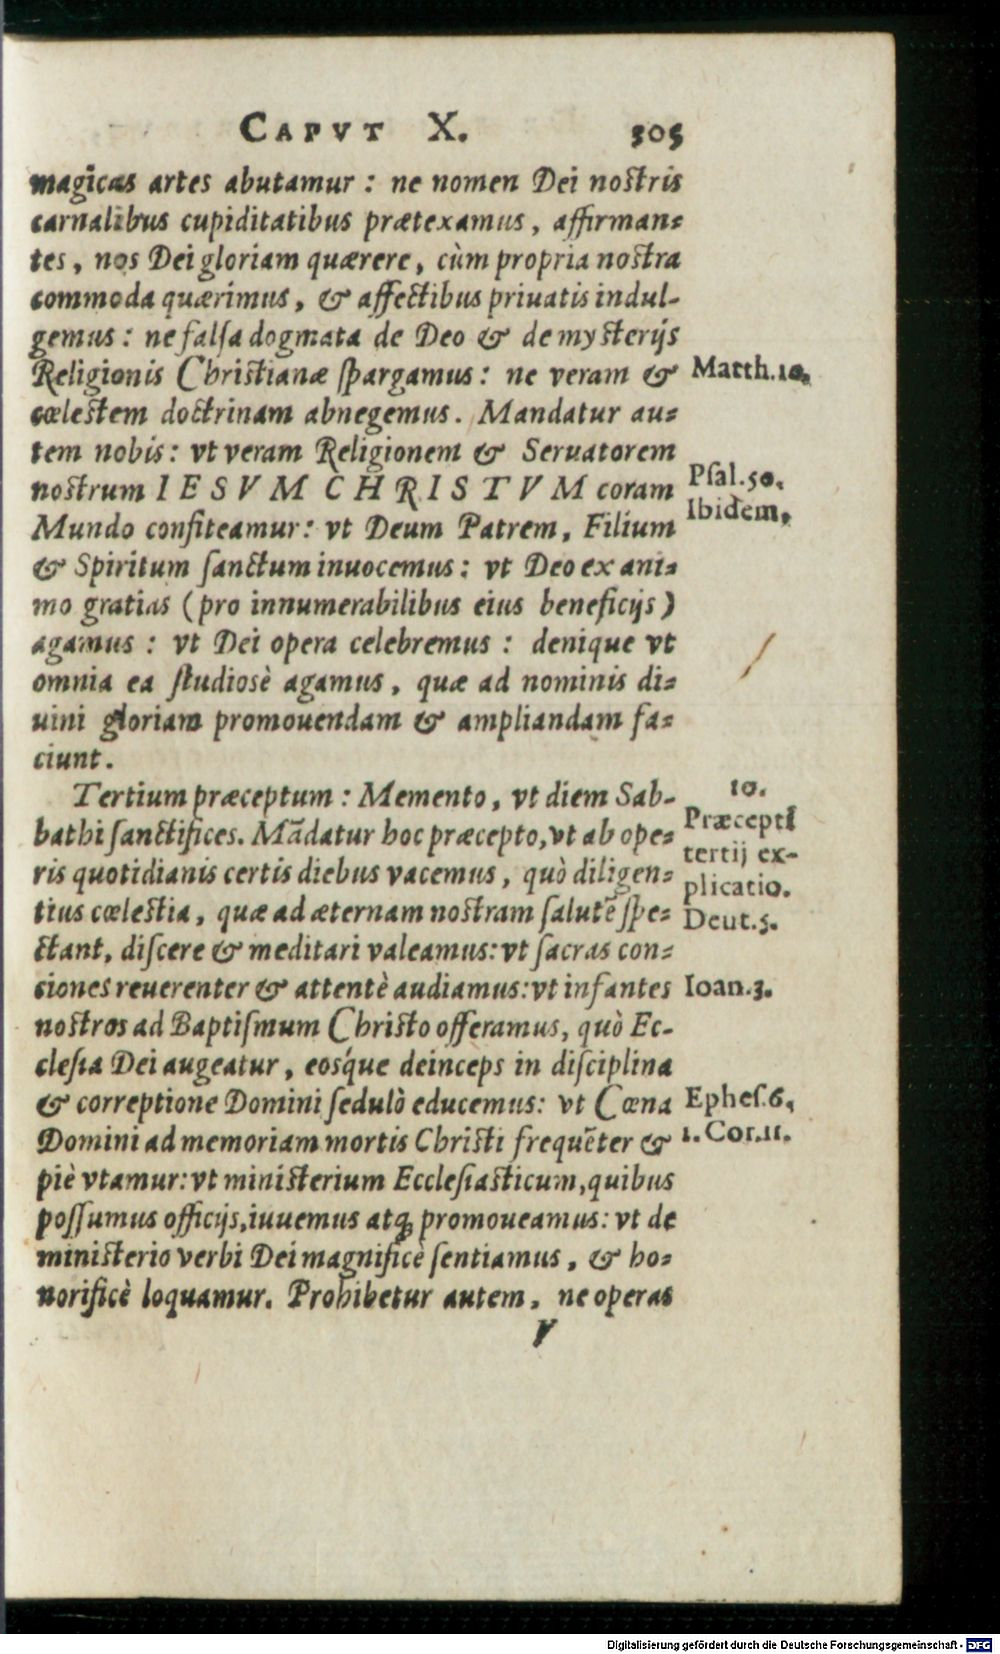 CAPVT X. 305
magicas artes abutamur : ne nomen Dei nostris
carnalibus cupiditatibus prætexamus, affirman-
tes, nos Dei gloriam quærere, cùm propria nostra
commoda quærimus, & affectibus priuatis indul-
gemus : ne falſa dogmata de Deo & de mysterijs
Religionis Christianæ ſpargamus : ne veram &
Matth.10.
cœlestem doctrinam abnegemus. Mandatur au-
tem nobis: vt veram Religionem & Seruatorem
nostrum IESVM CHRISTVM coram
Pſal.50.
Ibidem.
Mundo confiteamur: vt Deum Patrem, Filium
& Spiritum ſanctum inuocemus: vt Deo ex ani-
mo gratias (pro innumerabilibus eius beneficijs)
agamus : vt Dei opera celebremus : denique vt
omnia ea ſtudiosè agamus, quæ ad nominis di-
uini gloriam promouendam & ampliandam fa-
ciunt.
Tertium præceptum : Memento, vt diem Sab-
bathi ſanctifices. Mãdatur hoc præcepto, vt ab ope-
ris quotidianis certis diebus vacemus, quò diligen-
tius cœlestia, quæ ad æternam nostram ſalutẽ ſpe-
10.
Præcepti
tertij ex-
plicatio.
Deut.5.
ctant, diſcere & meditari valeamus: vt ſacras con-
ciones reuerenter & attentè audiamus: vt infantes
Ioan.3.
nostros ad Baptiſmum Christo offeramus, quò Ec-
cleſia Dei augeatur, eosq́ue deinceps in diſciplina
& correptione Domini ſedulò educemus: vt Cœna
Epheſ.6.
Domini ad memoriam mortis Christi frequẽter &
1.Cor.11.
piè vtamur: vt ministerium Eccleſiasticum, quibus
poſſumus officijs, iuuemus atq; promoueamus: vt de
ministerio verbi Dei magnificè ſentiamus, & ho-
norificè loquamur. Prohibetur autem, ne operas
V
Digitalisierung gefördert durch die Deutsche Forschungsgemeinschaft - DFG